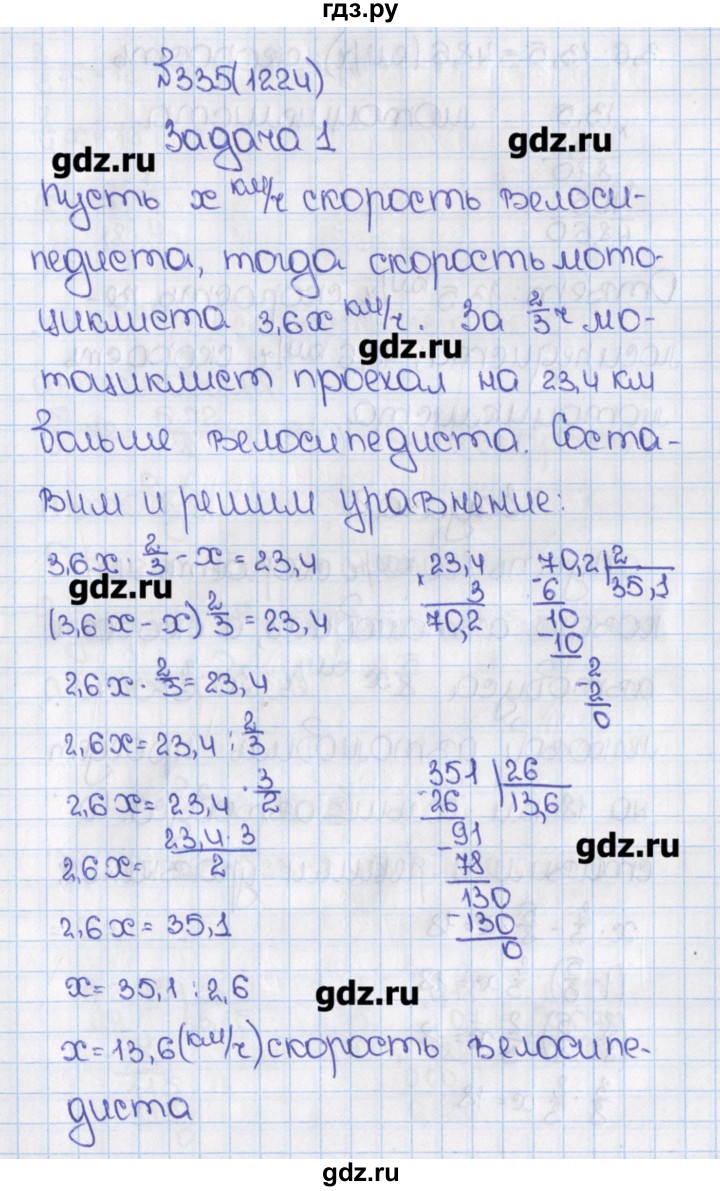 гдз.ру
№335(1224)
Задача 1
gdz.ru
gdz.ru
Пусть x км/ч скорость велоси-
педиста, тогда скорость мото-
циклиста 3,6x км/ч. За 2/3 ч мо-
gdz.ru
тоциклист проехал на 23,4 км
больше велосипедиста. Соста-
вим и решим уравнение:
3,6x · 2/3 - x = 23,4
gdz.ru
(3,6x - x) 2/3 = 23,4
2,6x · 2/3 = 23,4
2,6x = 23,4 : 2/3
2,6x = 23,4 · 3/2
2,6x = 23,4 · 3 / 2
2,6x = 35,1
x = 35,1 : 2,6
x 23,4
3
70,2
70,2 | 2
35,1
- 6
10
- 10
2
- 2
0
351 | 26
13,6
- 26
91
- 78
130
- 130
0
gdz.ru
gdz.ru
x = 13,6 (км/ч) скорость велосипе-
диста
gdz.ru